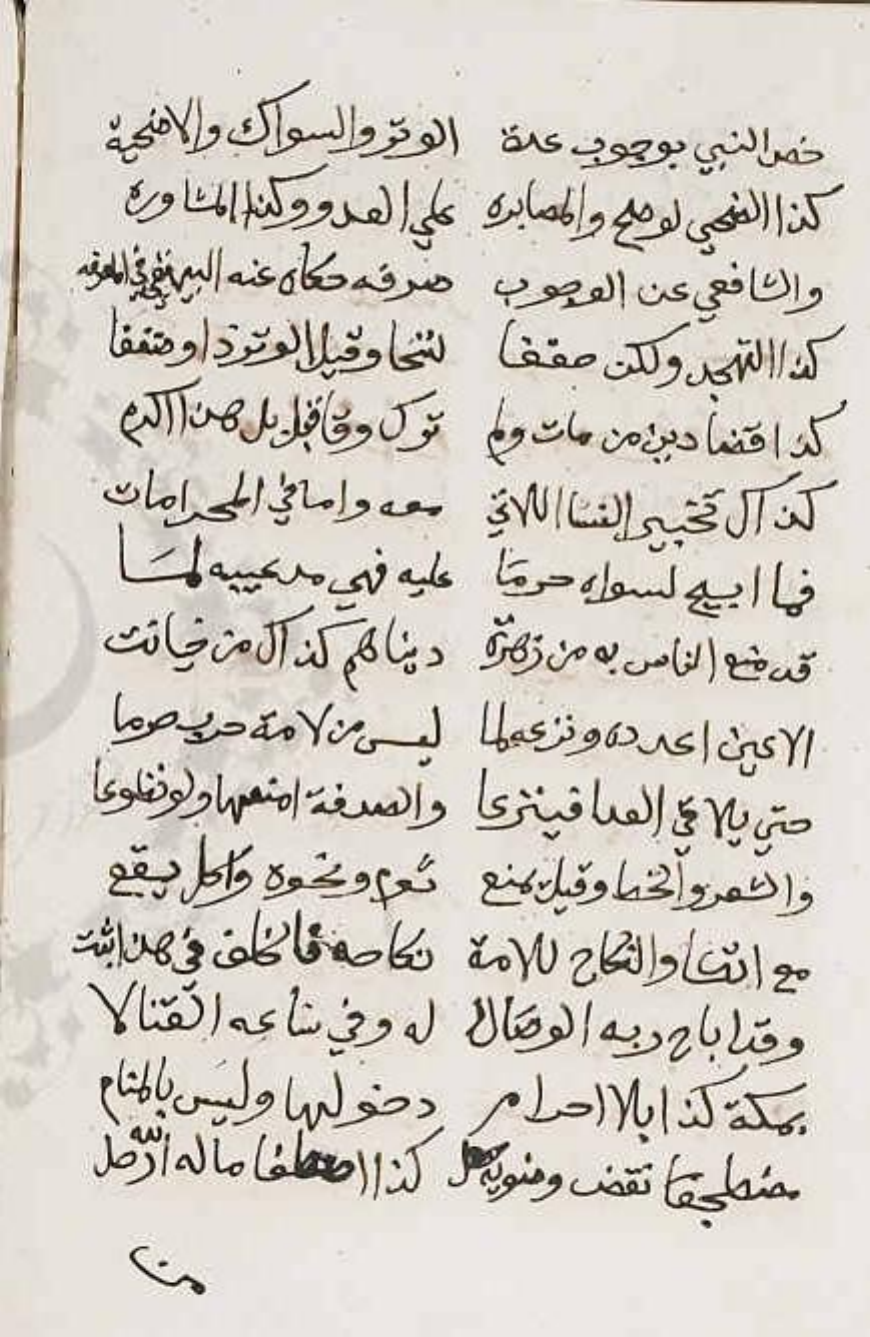 خص النبي بوجوب عدة الوتر والسواك والاضحية
كذا الضحي لو صح والمصابره علي العدو وكذا المشاوره
والشافعي عن الوجوب صرفه حكاه عنه البيهقي في المعرفه
كذا التهجد ولكن خففا نسخا وقيل الوتر ذا وضعفا
كذا قضا دين من مات ولم ترك وفا قيل بل هذا اكرم
كذاك تخيير النسا اللاتي معه واما في المحرمات
فما ابيح لسواه حرما عليه فهي مد عينيه لما
قد متع الناس به من زهرة دنياهم كذاك من خيانت
الاعين اعدده ونزعه لما لبس من لامة حرب حرما
حتي يلاقي العدا فينزعا والصدقة امنعها ولو تطوعا
والشعر والخط وقيل يمنع ثوم ونحوه واكل يقع
مع اتكا والنكاح للامة نكاحه فالخلف في هذا ثبت
وقد اباح ربه الوصال له وفي ساعه القتالا
بمكة كذا بلا احرام دخولها وليس بالمنام
مضطجعا نقض كذا اصطفا ما له الله احل
من